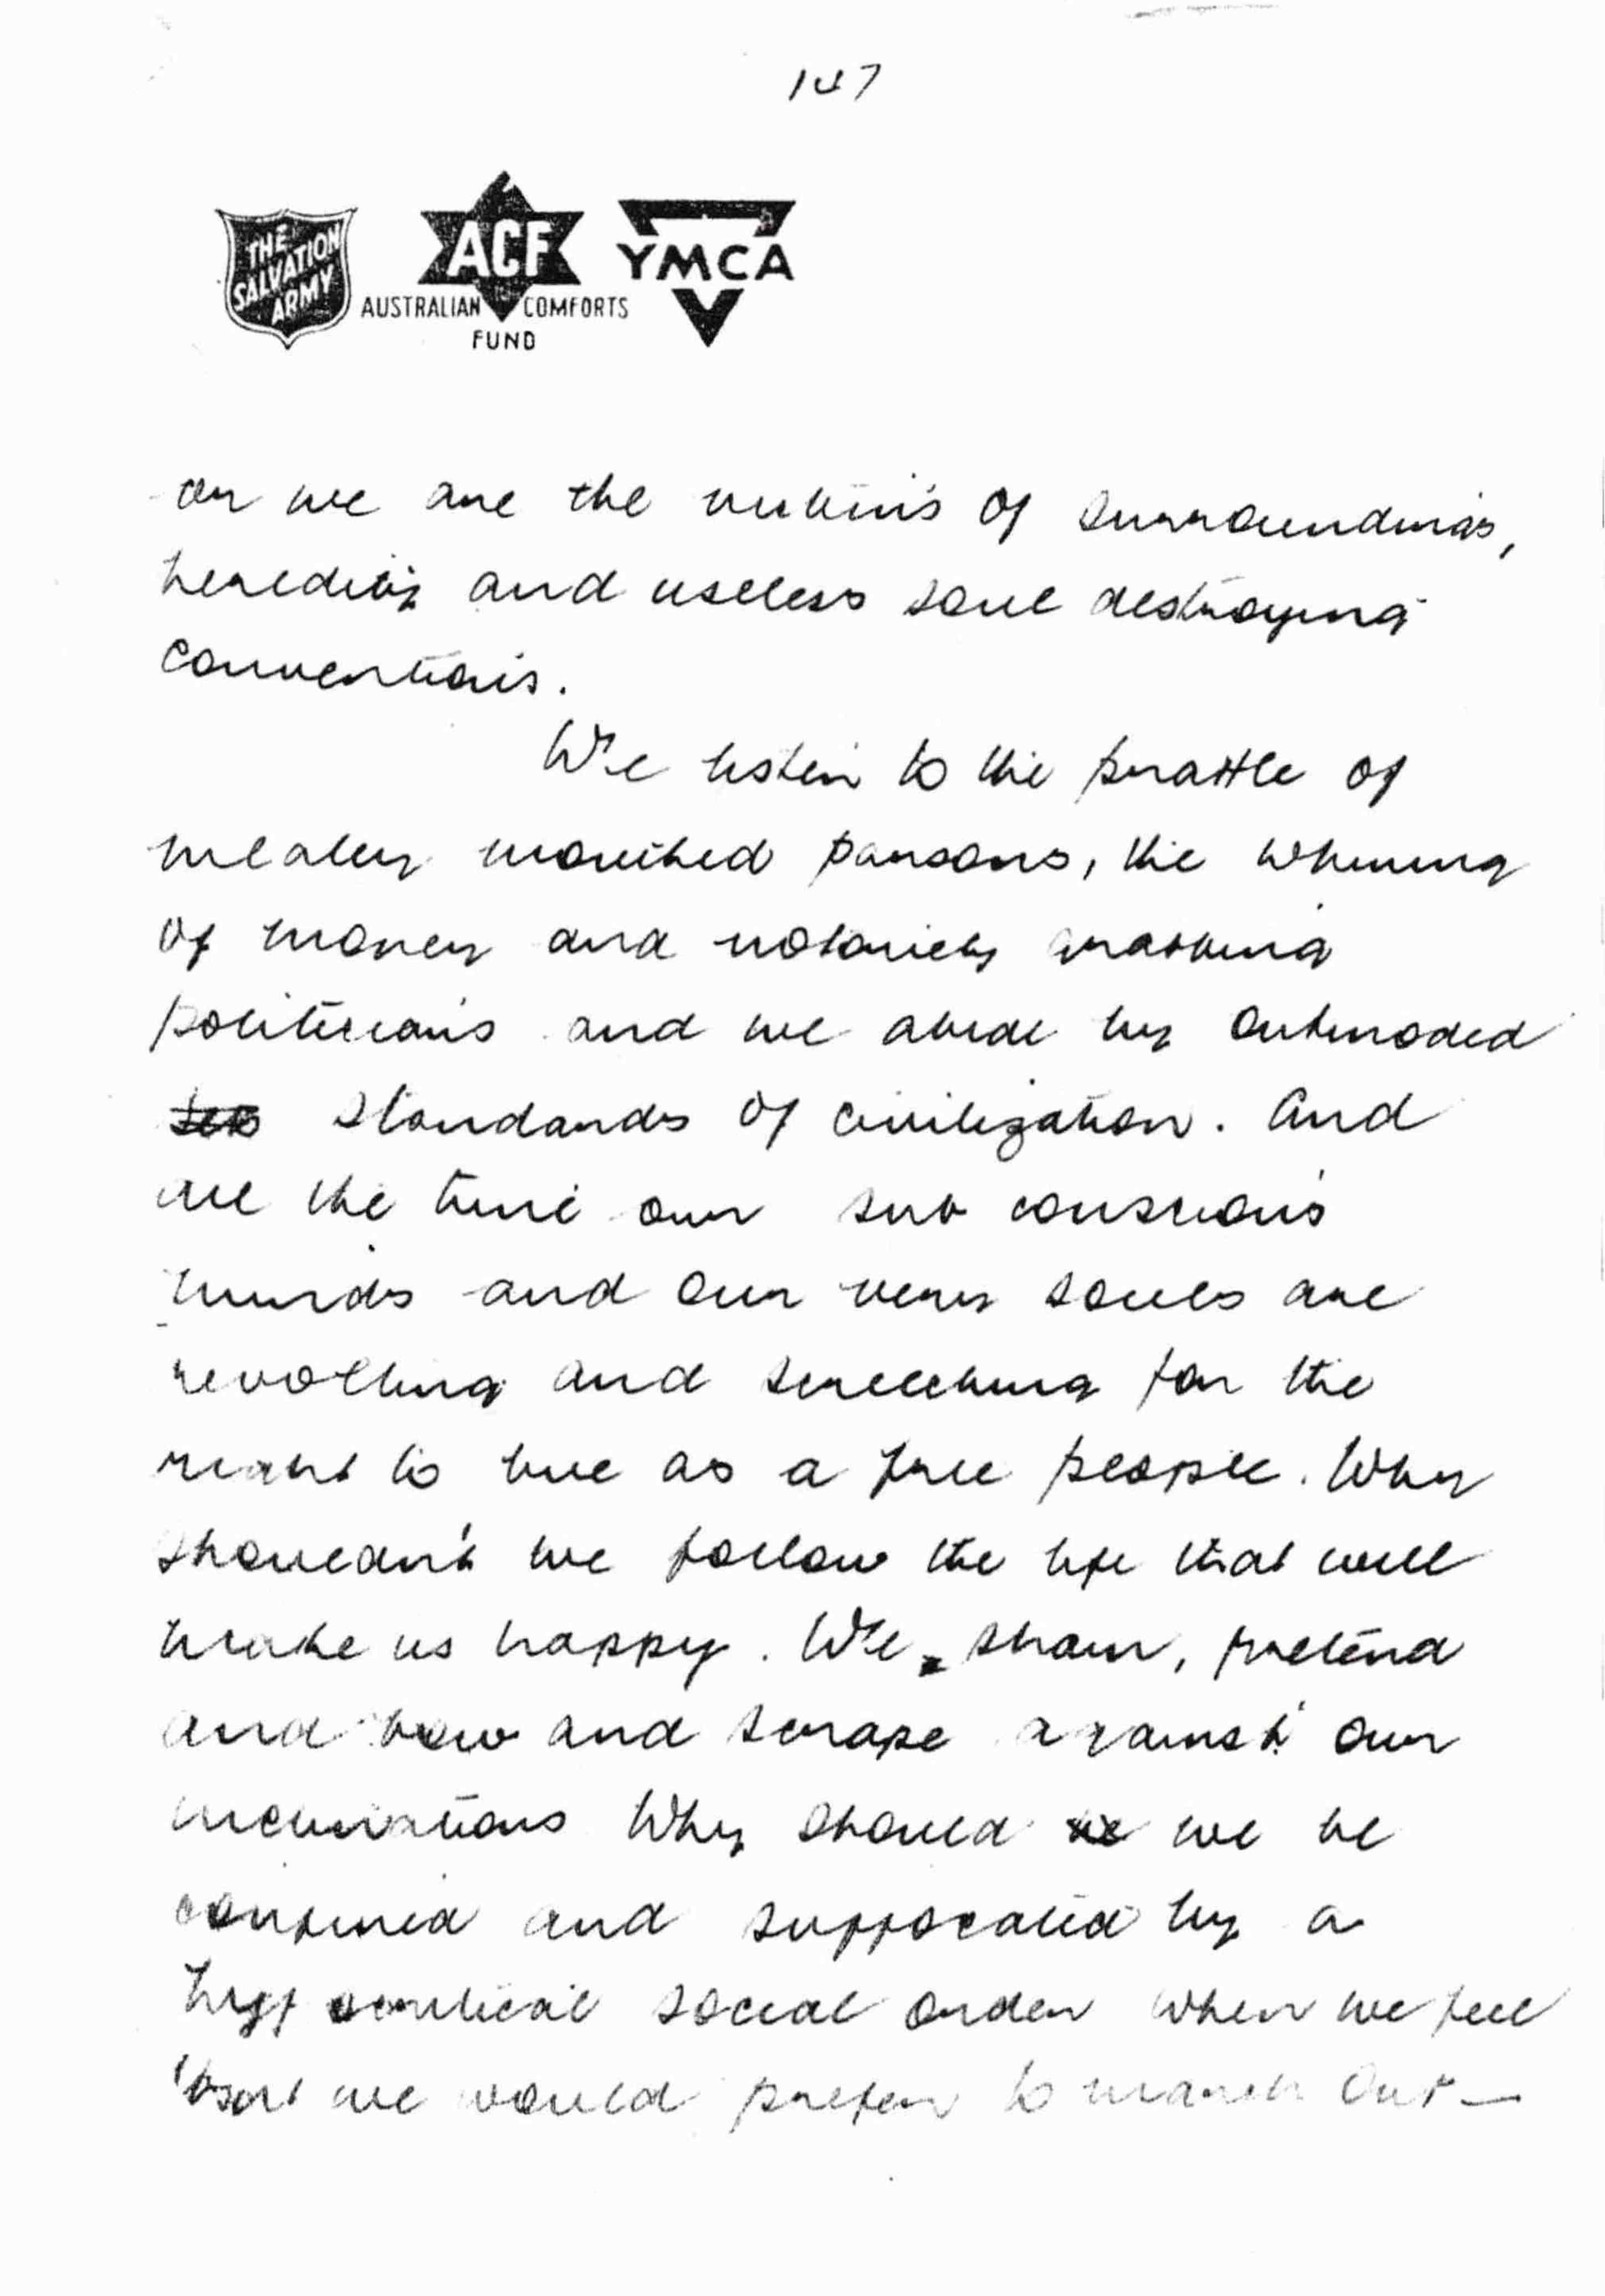 147
THE SALVATION ARMY
ACF
AUSTRALIAN COMFORTS
FUND
YMCA
or we are the victims of surroundings,
heredity and useless soul destroying
conventions.
We listen to the prattle of
mealey mouthed parsons, the whining
of money and notoriety grasping
politicians and we abide by outmoded
standards of civilization. And
all the time our sub conscious
minds and our very souls are
revolting and screeching for the
right to live as a free people. Why
shouldn't we follow the life that will
make us happy. We sham, pretend
and bow and scrape against our
inclinations Why should we be
confined and suffocated by a
hypocritical social order when we feel
that we would prefer to march out—